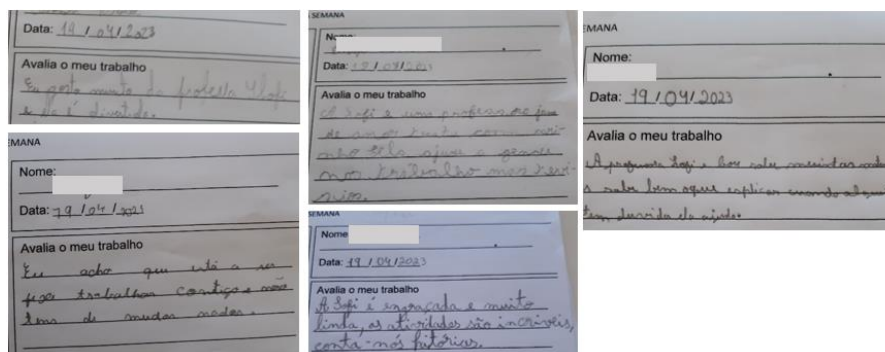 Data: 19/04/2023
Avalia o meu trabalho
Eu gosto muito da professora Sofi
e ela é divertida.
EMANA
Nome:
Data: 19/04/2023
Avalia o meu trabalho
Eu acho que está a ser
fixe trabalhar contigo e não
tens de mudar nada.
A SEMANA
Nome:
Data: 19/04/2023
Avalia o meu trabalho
A Sofi e uma professora
de amor trata com
nho ela ajuda a gente
nos trabalho nas
SEMANA
Nome
Data: 19/04/2023
Avalia o meu trabalho
A Sofi é engraçada e muito
linda, as atividades são incríveis,
conta-nós hitórias.
EMANA
Nome:
Data: 19/04/2023
Avalia o meu trabalho
A Sofi e boa sabe
sabe bem oque explicar cuando
tem duvida ela ajuda.